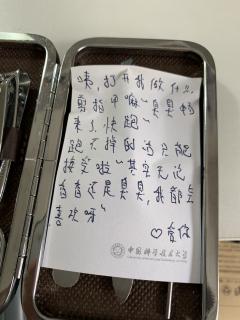 咦，打开我做什么
剪指甲嘛"臭臭
来了，快跑"
跑不掉的话只能
接受啦"其实无论
香香还是臭臭，我都会
喜欢呀"
♡爱你
中国科学技术大学